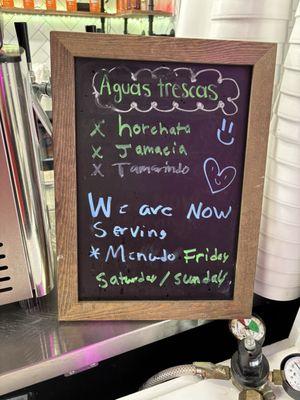 Aguas frescas
x horchata
x Jamacia
x Tamarindo
We are Now
Serving
*Menudo Friday
Saturday/Sunday